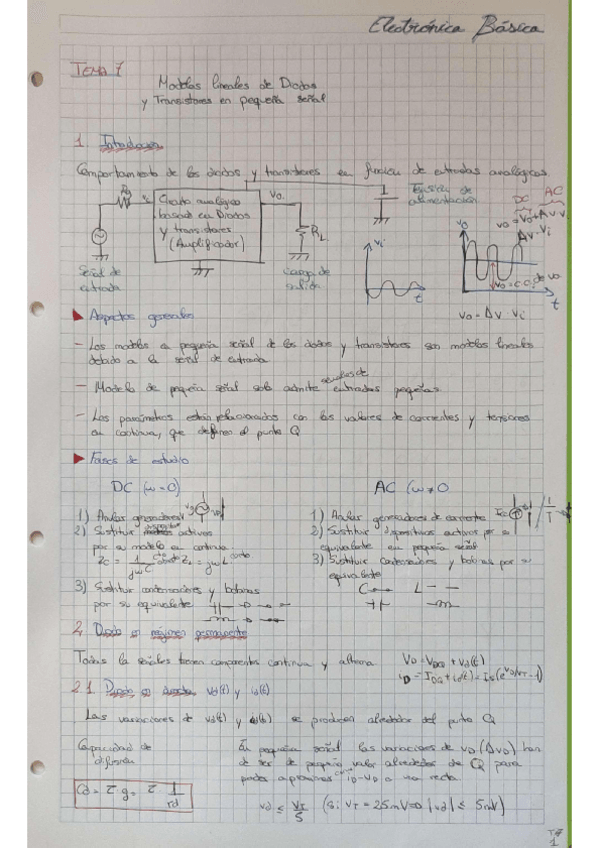 Electrónica Básica
TEMA 7
Modelos lineales de Diodos
y Transistores en pequeña señal
1. Introducción
Comportamiento de los diodos y transistores en función de entradas analógicas
Circuito analógico
basado en Diodos
y transistores
(Amplificador)
Vo
RL
Tensión de
alimentación
DC AC
Señal de
entrada
Carga de
salida
vi
t
vo
t
vo = Δv · vi
▶ Aspectos generales
- Los modelos en pequeña señal de los diodos y transistores son modelos lineales
debido a la señal de entrada
- Modelo de pequeña señal solo admite señales de entradas pequeñas
- Los parámetros están relacionados con los valores de corrientes y tensiones
en continua, que definen el punto Q
▶ Fases de estudio
DC (ω = 0)
1) Anular generadores
2) Sustituir dispositivos activos
por su modelo en continua
Zc = 1/jωC ZL = jωL
3) Sustituir condensadores y bobinas
por su equivalente
AC (ω ≠ 0
1) Anular generadores de corriente
2) Sustituir dispositivos activos por su
equivalente en pequeña señal
3) Sustituir condensadores y bobinas por su
equivalente
C L
2. Diodo en régimen permanente
Todas la señales tienen componentes continua y alterna
VD = VDQ + vd(t)
iD = IDQ + id(t) = Is(e^vD/VT - 1)
2.1. Diodo en directa vd(t) y id(t)
Las variaciones de vd(t) y id(t) se producen alrededor del punto Q
Capacidad de
difusión
Cd = τ g = τ 1/rd
En pequeña señal las variaciones de vD (ΔvD) han
de ser de pequeño valor alrededor de Q para
poder aproximar curva iD-vD a una recta
vd ≤ VT/5 (Si VT = 25mV => |vd| ≤ 5mV)
T7
1